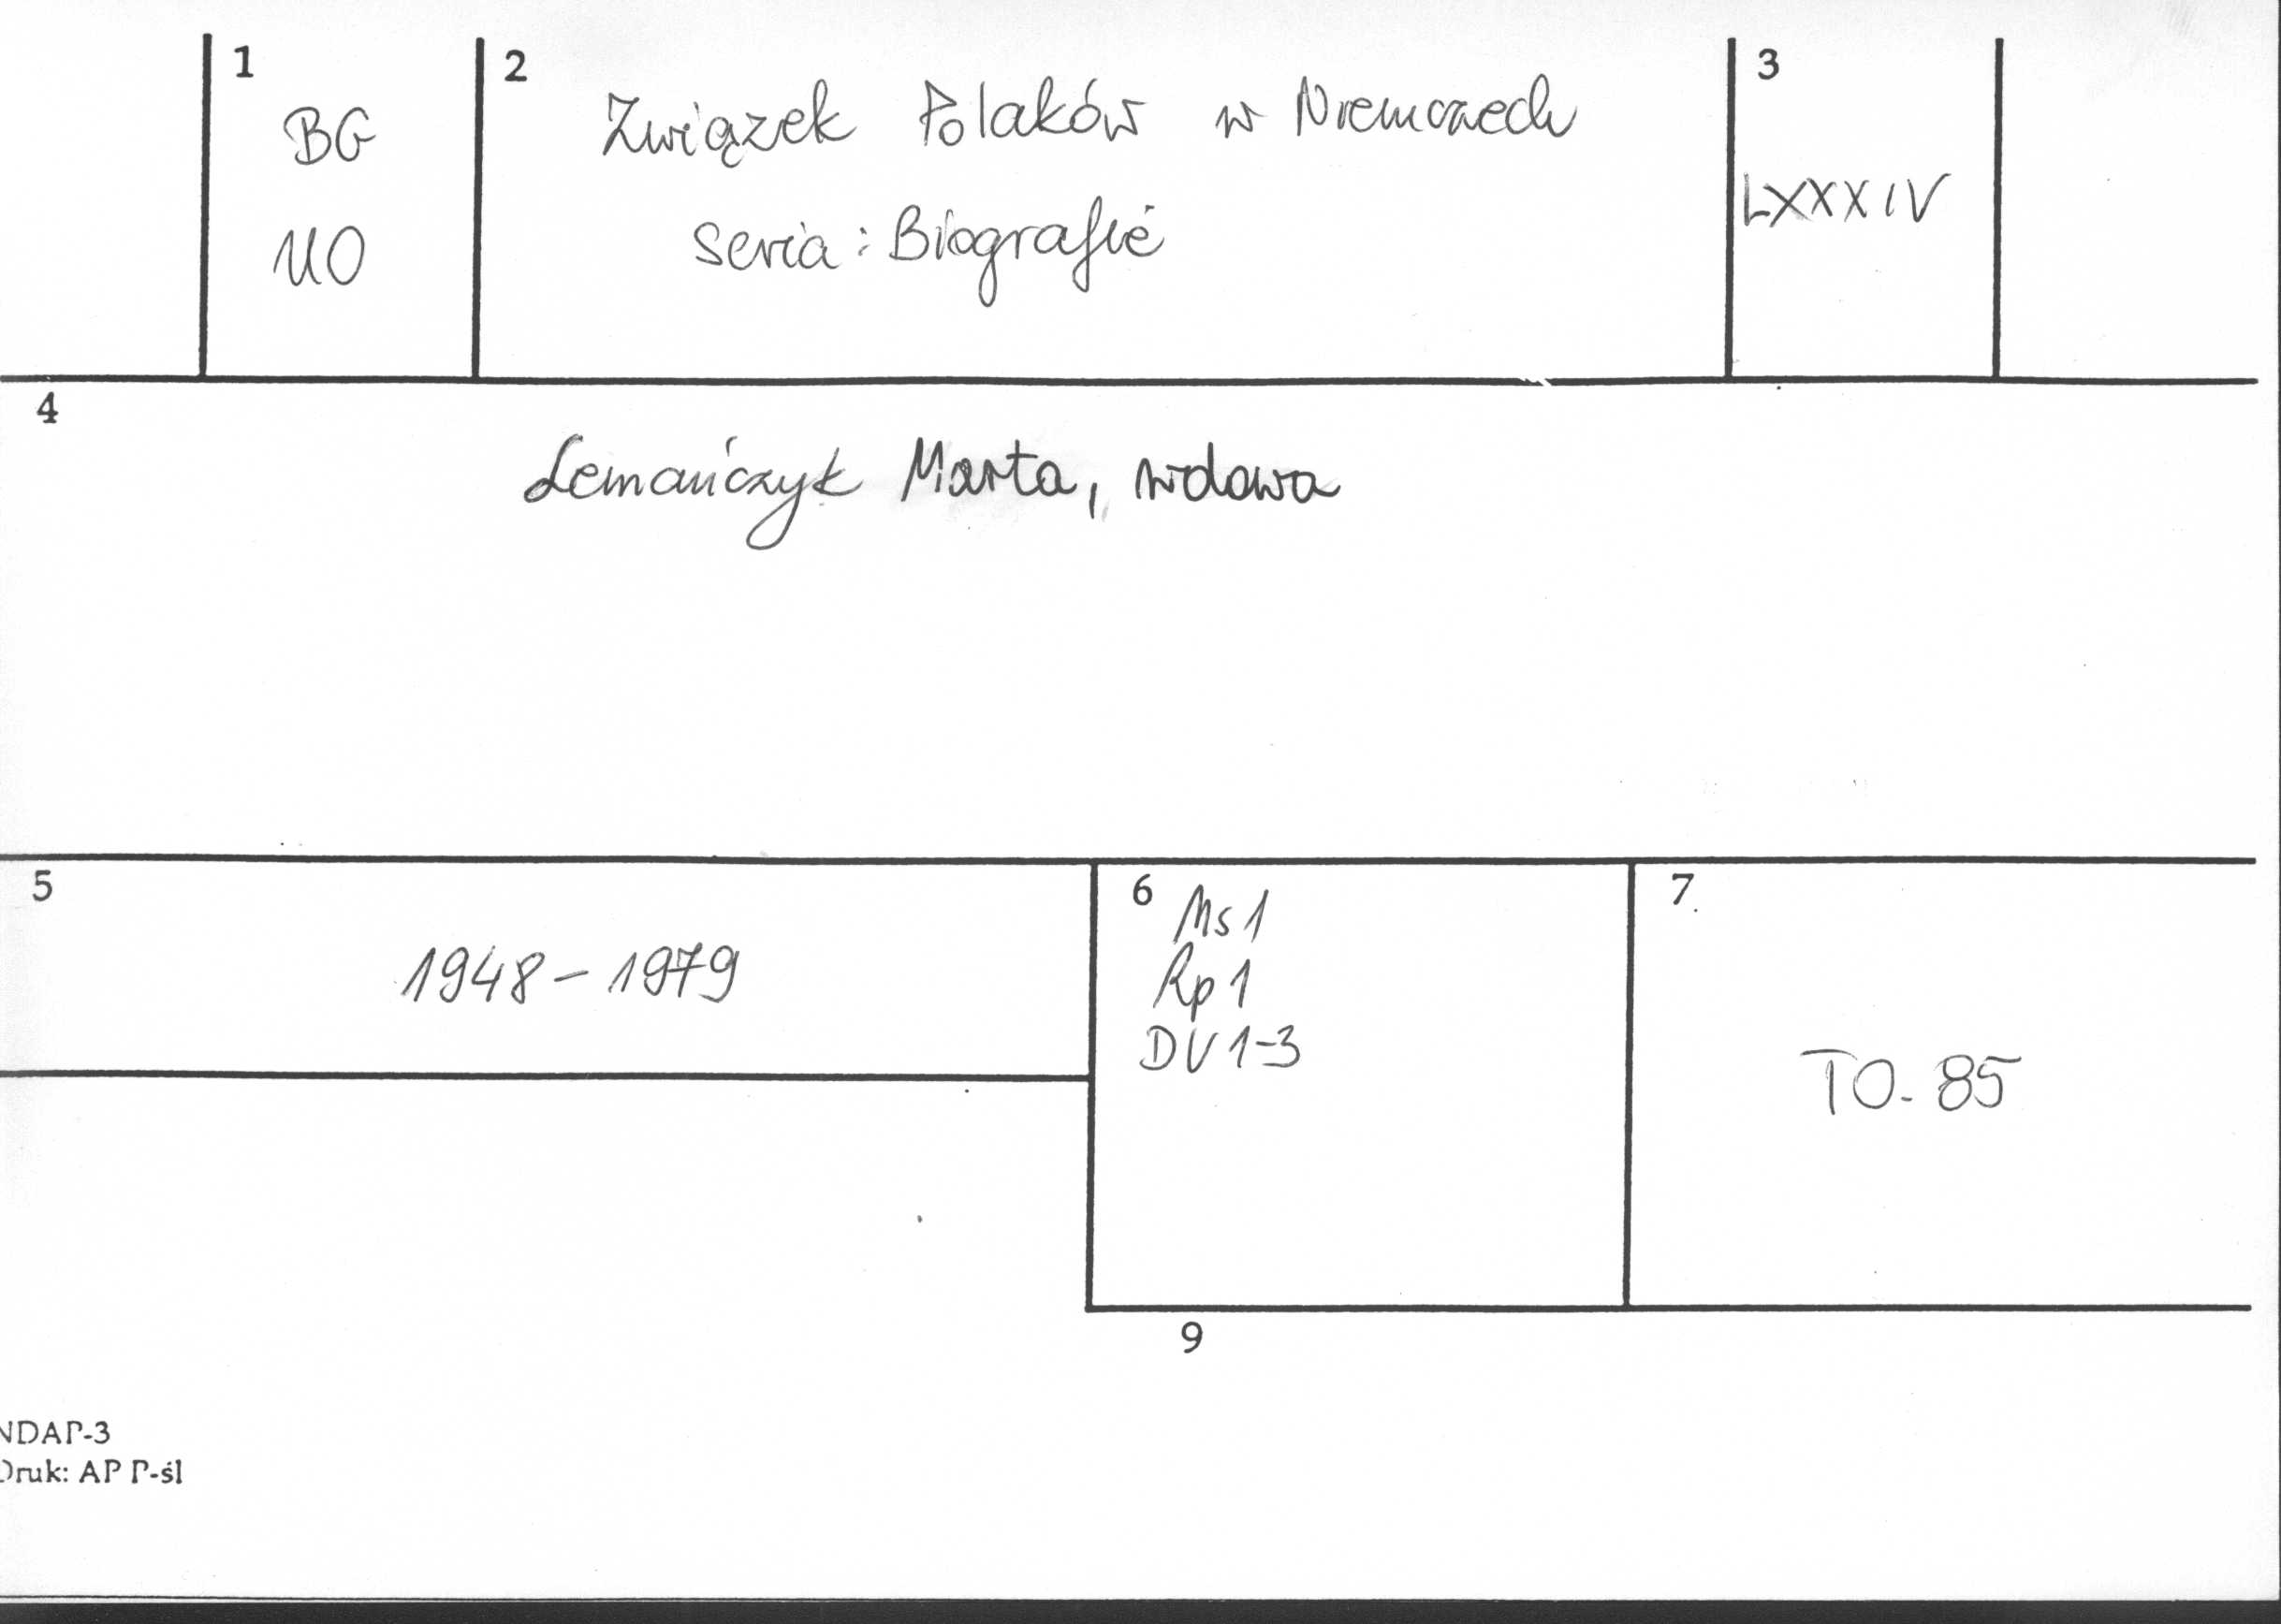 1
BG
UO
2
Związek Polaków w Niemczech
seria: Biografie
3
LXXXIV
4
Lemańczyk Marta, wdowa
5
1948-1979
6
Ms1
Rp1
DV1-3
7.
TO-85
9
NDAP-3
Druk: AP P-śl